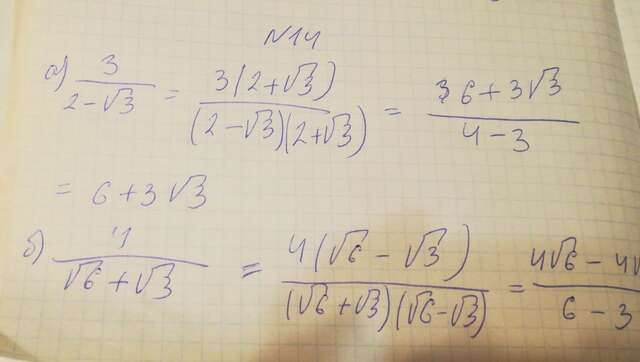 N14
а) 3/(2-√3) = 3(2+√3)/((2-√3)(2+√3)) = 6+3√3/(4-3)
= 6+3√3
б) 4/(√6+√3) = 4(√6-√3)/((√6+√3)(√6-√3)) = 4√6-4√/(6-3)